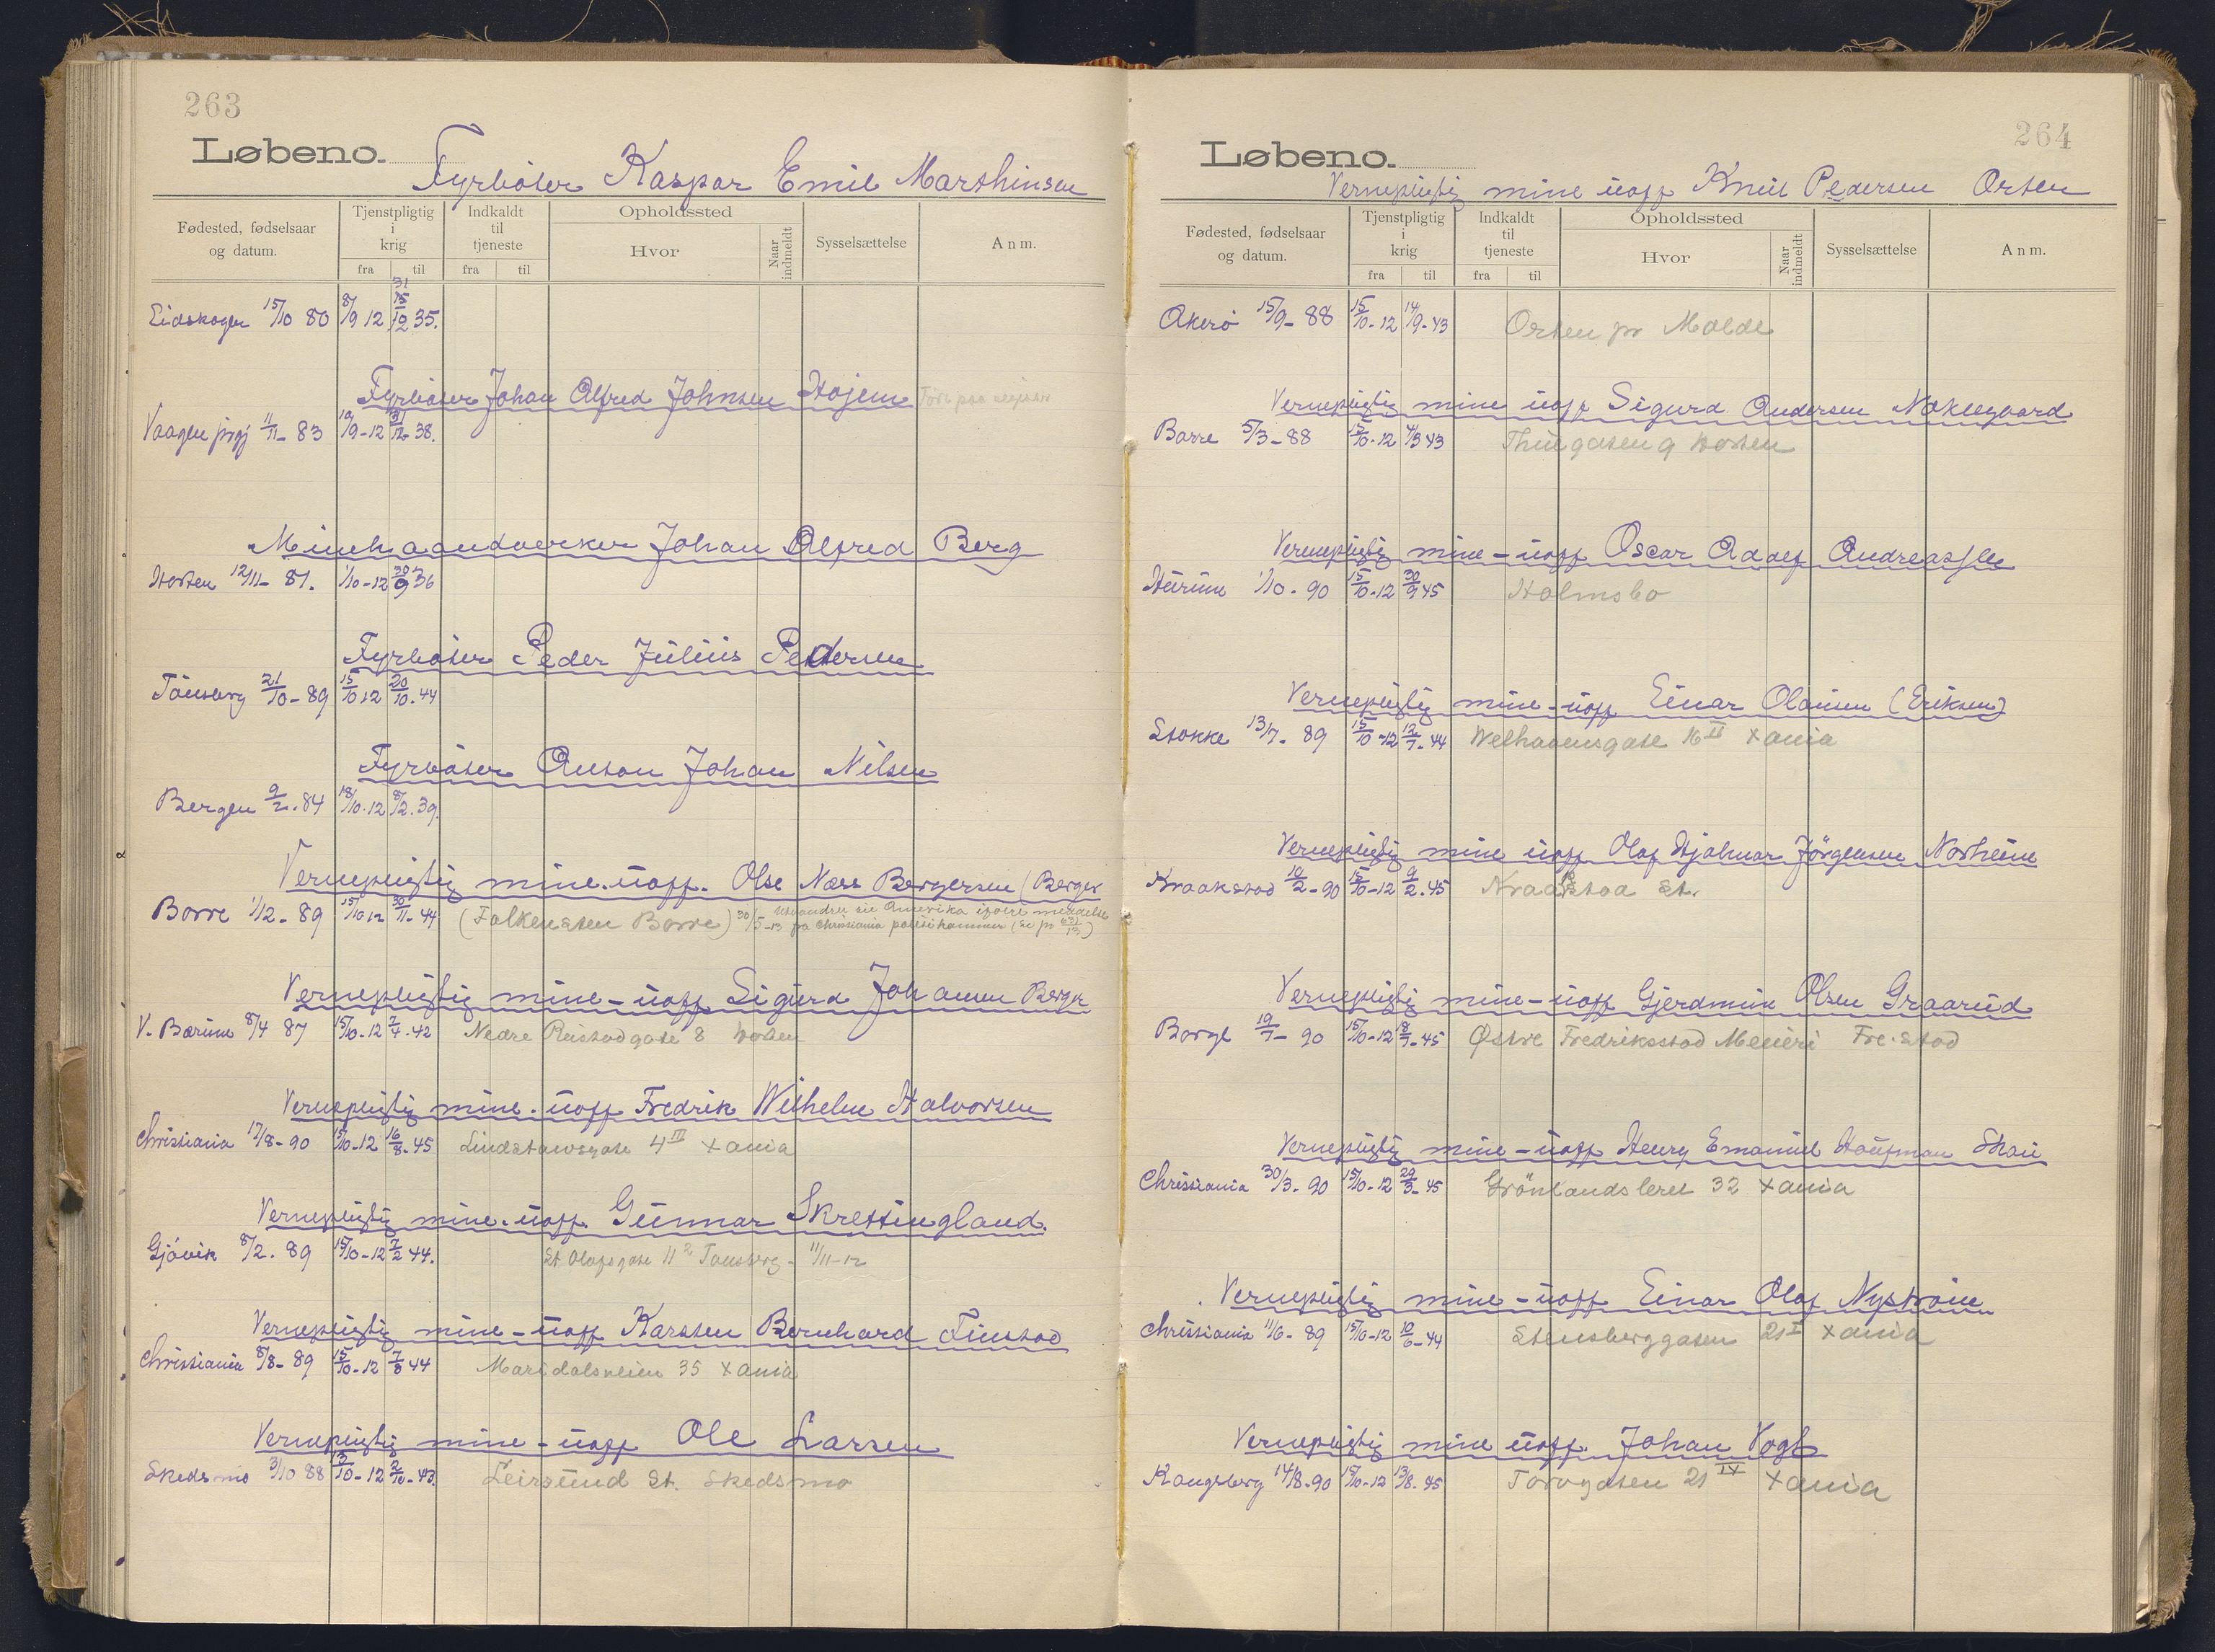 263
Løbeno.
Fyrbøter Kaspar Emil Marthinsen
Fødested, fødselsaar og datum.
Tjenstpligtig i krig
fra til
Indkaldt til tjeneste
fra til
Opholdssted
Hvor
Naar indmeldt
Sysselsættelse
Anm.
Eidskogen 15/10 80 8/9 12 31/12 35.
Fyrbøter Johan Alfred Johnsen Hojem
Vaagen prgj 11/11- 83 10/9-12 31/12-38.
Minehaandverker Johan Alfred Berg
Horten 12/11- 81. 1/10-12 30/9 36
Fyrbøter Peder Julius Pedersen
Tönsberg 21/10-89 15/10 12 20/10.44
Fyrbøter Anton Johan Nilsen
Bergen 9/2.84 18/10.12 8/2.39.
Vernepligtig mine.uoff. Ole Næss Bergersen (Berger
Borre 1/12-89 15/10 12 30/11-44 (Falkensten Borre) 30/5-13 utvandret til Amerika ifølge meddelse
fra Christiania politikammer
Vernepligtig mine-uoff Sigurd Johansen Berger
V. Bærum 8/4 87 15/10-12 7/4-42 Nedre Keistadgate 8 Horten
Vernepligtig mine.uoff Fredrik Wilhelm Halvorsen
Christiania 17/8-90 15/10-12 16/8-45 Lindstowsgate 4 III Xania
Vernepligtig mine.uoff. Gunnar Skrettingland.
Gjövik 8/2.89 15/10-12 7/2 44. St Olafsgate 11² Tønsberg - 11/11-12
Vernepligtig mine-uoff Karsten Bernhard Finstad
Christiania 8/8-89 15/10-12 7/8 44 Maridalsveien 35 Xania
Vernepligtig mine-uoff Ole Larsen
Skedsmo 3/10 88 15/10-12 2/10-43. Leirsund St. Skedsmo
264
Løbeno.
Vernepligtig mine uoff Knut Pedersen Orten
Fødested, fødselsaar og datum.
Tjenstpligtig i krig
fra til
Indkaldt til tjeneste
fra til
Opholdssted
Hvor
Naar indmeldt
Sysselsættelse
Anm.
Akerö 15/9-88 15/10-12 14/9-43 Orten pr Molde
Vernepligtig mine uoff Sigurd Andersen Nøklegaard
Borre 5/3-88 15/10-12 4/3 43 Thuegaten 9 Horten
Vernepligtig mine-uoff Oscar Adolf Andreassen
Hurum 1/10.90 15/10-12 30/9 45 Holmsbo
Vernepligtig mine-uoff Einar Olausen (Eriksen)
Stokke 13/7.89 15/10-12 12/7-44 Welhavensgate 16 II Xania
Vernepligtig mine uoff Olaf Hjalmar Jörgensen Norheim
Kraakstad 10/2-90 15/10-12 9/2.45 Kraakstad St.
Vernepligtig mine-uoff Gjerdmun Olsen Graarud
Borge 19/7-90 15/10-12 18/7-45 Østre Fredriksstad Meieri Fre.stad
Vernepligtig mine-uoff Henry Emanuel Haufman Skau
Christiania 30/3-90 15/10-12 29/3-45 Grönlandsleret 32 Xania
Vernepligtig mine-uoff Einar Olaf Nystrøm
Christiania 11/6-89 15/10-12 10/6-44 Stensberggaten 21 I Xania
Vernepligtig mine uoff. Johan Vogt
Kongsberg 14/8-90 15/10-12 13/8.45 Torvgaten 21 IV Xania